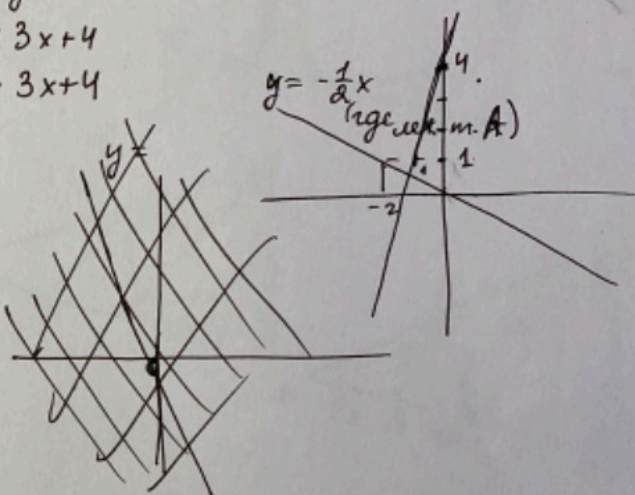 3x+4
- 3x+4
y = -1/2 x
(где леж. т. A)
4.
1
-2
y =